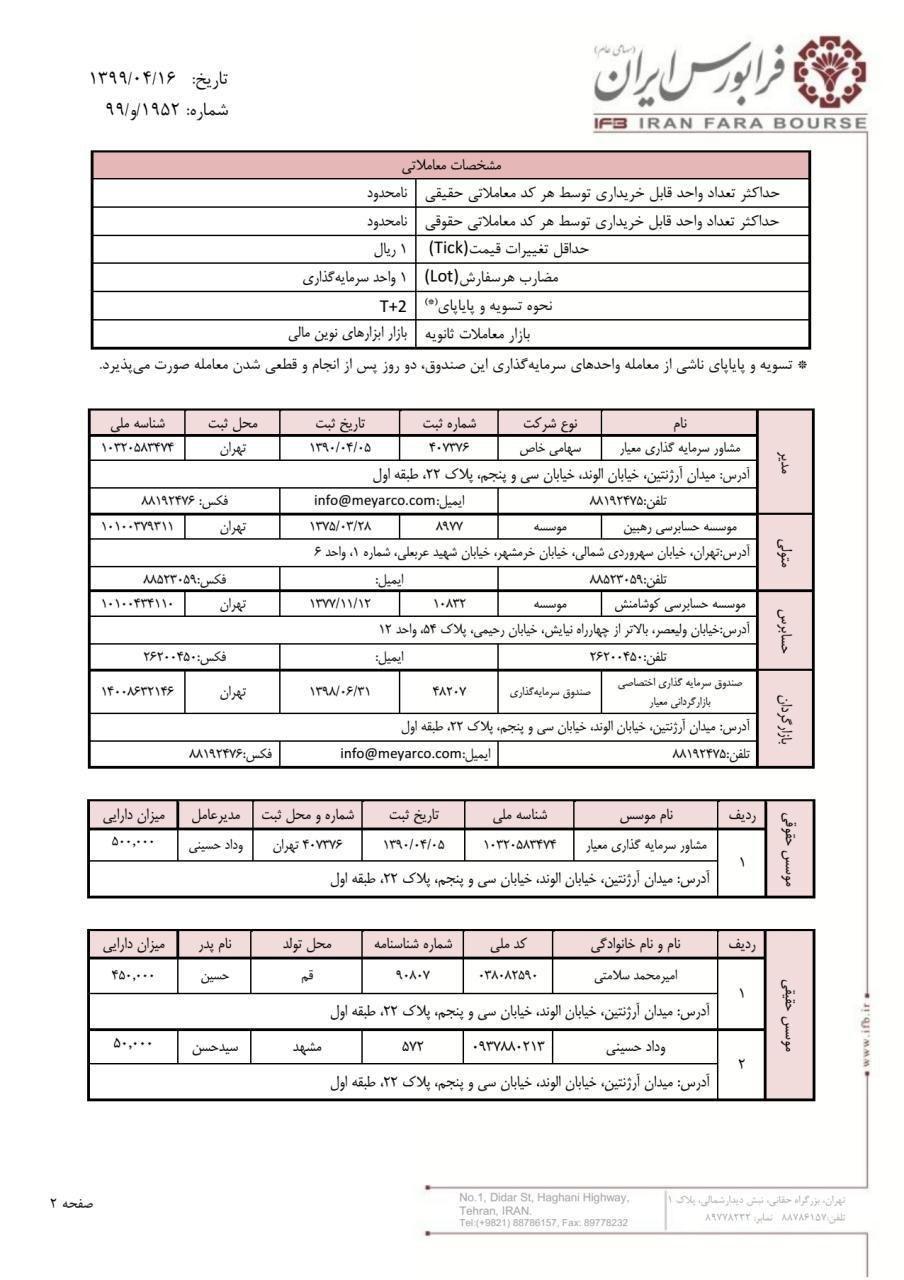 (سهامی عام)
فرابورس ایران
IFB IRAN FARA BOURSE
تاریخ: ۱۳۹۹/۰۴/۱۶
شماره: ۹۹/و/۱۹۵۲
مشخصات معاملاتی
حداکثر تعداد واحد قابل خریداری توسط هر کد معاملاتی حقیقی نامحدود
حداکثر تعداد واحد قابل خریداری توسط هر کد معاملاتی حقوقی نامحدود
حداقل تغییرات قیمت(Tick) ۱ ریال
مضارب هرسفارش(Lot) ۱ واحد سرمایه‌گذاری
نحوه تسویه و پایاپای(*) T+2
بازار معاملات ثانویه بازار ابزارهای نوین مالی
* تسویه و پایاپای ناشی از معامله واحدهای سرمایه‌گذاری این صندوق، دو روز پس از انجام و قطعی شدن معامله صورت می‌پذیرد.
مدیر
نام نوع شرکت شماره ثبت تاریخ ثبت محل ثبت شناسه ملی
مشاور سرمایه گذاری معیار سهامی خاص ۴۰۷۳۷۶ ۱۳۹۰/۰۴/۰۵ تهران ۱۰۳۲۰۵۸۳۴۷۴
آدرس: میدان آرژنتین، خیابان الوند، خیابان سی و پنجم، پلاک ۲۲، طبقه اول
تلفن:۸۸۱۹۲۴۷۵ ایمیل:info@meyarco.com فکس: ۸۸۱۹۲۴۷۶
متولی
موسسه حسابرسی رهبین موسسه ۸۹۷۷ ۱۳۷۵/۰۳/۲۸ تهران ۱۰۱۰۰۳۷۹۳۱۱
آدرس:تهران، خیابان سهروردی شمالی، خیابان خرمشهر، خیابان شهید عربعلی، شماره ۱، واحد ۶
تلفن:۸۸۵۲۳۰۵۹ ایمیل: فکس:۸۸۵۲۳۰۵۹
حسابرس
موسسه حسابرسی کوشامنش موسسه ۱۰۸۳۲ ۱۳۷۷/۱۱/۱۲ تهران ۱۰۱۰۰۴۳۴۱۱۰
آدرس:خیابان ولیعصر، بالاتر از چهارراه نیایش، خیابان رحیمی، پلاک ۵۴، واحد ۱۲
تلفن:۲۶۲۰۰۴۵۰ ایمیل: فکس:۲۶۲۰۰۴۵۰
بازارگردان
صندوق سرمایه گذاری اختصاصی صندوق سرمایه‌گذاری ۴۸۲۰۷ ۱۳۹۸/۰۶/۳۱ تهران ۱۴۰۰۸۶۳۲۱۴۶
بازارگردانی معیار
آدرس: میدان آرژنتین، خیابان الوند، خیابان سی و پنجم، پلاک ۲۲، طبقه اول
تلفن:۸۸۱۹۲۴۷۵ ایمیل:info@meyarco.com فکس:۸۸۱۹۲۴۷۶
موسس حقوقی
ردیف نام موسس شناسه ملی تاریخ ثبت شماره و محل ثبت مدیرعامل میزان دارایی
۱ مشاور سرمایه گذاری معیار ۱۰۳۲۰۵۸۳۴۷۴ ۱۳۹۰/۰۴/۰۵ ۴۰۷۳۷۶ تهران وداد حسینی ۵۰۰,۰۰۰
آدرس: میدان آرژنتین، خیابان الوند، خیابان سی و پنجم، پلاک ۲۲، طبقه اول
موسس حقیقی
ردیف نام و نام خانوادگی کد ملی شماره شناسنامه محل تولد نام پدر میزان دارایی
۱ امیرمحمد سلامتی ۰۳۸۰۸۲۵۹۰ ۹۰۸۰۷ قم حسین ۴۵۰,۰۰۰
آدرس: میدان آرژنتین، خیابان الوند، خیابان سی و پنجم، پلاک ۲۲، طبقه اول
۲ وداد حسینی ۰۹۳۷۸۸۰۲۱۳ ۵۷۲ مشهد سیدحسن ۵۰,۰۰۰
آدرس: میدان آرژنتین، خیابان الوند، خیابان سی و پنجم، پلاک ۲۲، طبقه اول
www.ifb.ir
تهران، بزرگراه حقانی، نبش دیدارشمالی، پلاک ۱
تلفن:۸۸۷۸۶۱۵۷ نمابر: ۸۹۷۷۸۲۳۲
No.1, Didar St, Haghani Highway,
Tehran, IRAN.
Tel:(+9821) 88786157, Fax: 89778232
صفحه ۲